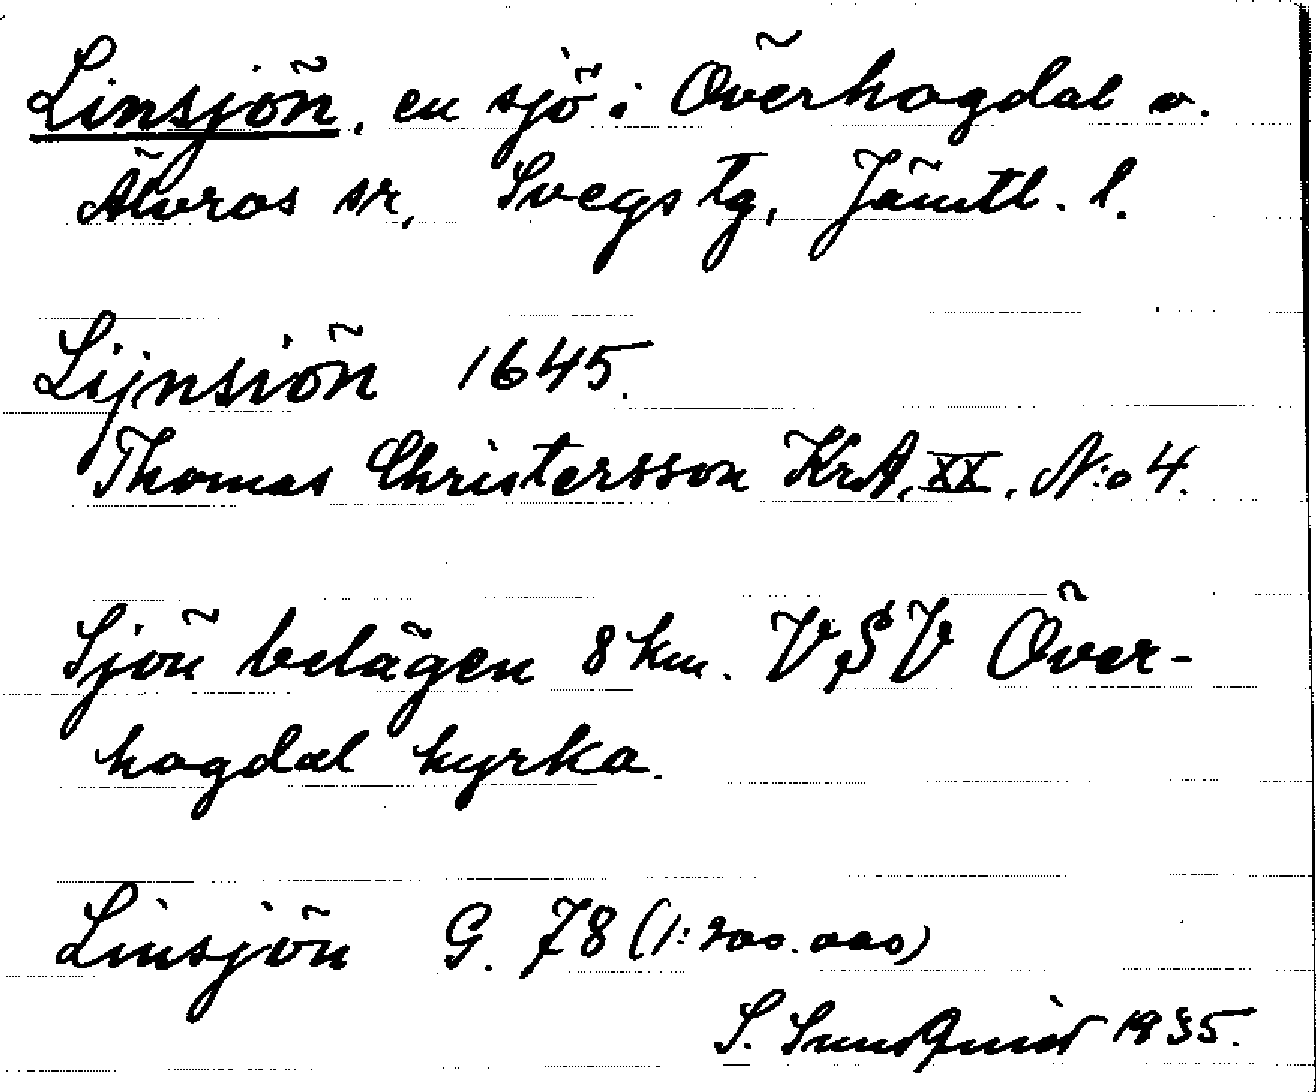 Linsjön, en sjö i Överhogdal o.
Älvros sr, Svegs tg, Jämtl. l.
Lijnsiön 1645.
Thomas Christersson KrA, XX, N:o 4.
Sjön belägen 8 km. VSV Över-
hogdal kyrka.
Linsjön G. 78 (1:200.000)
S. Sundquist 1935.